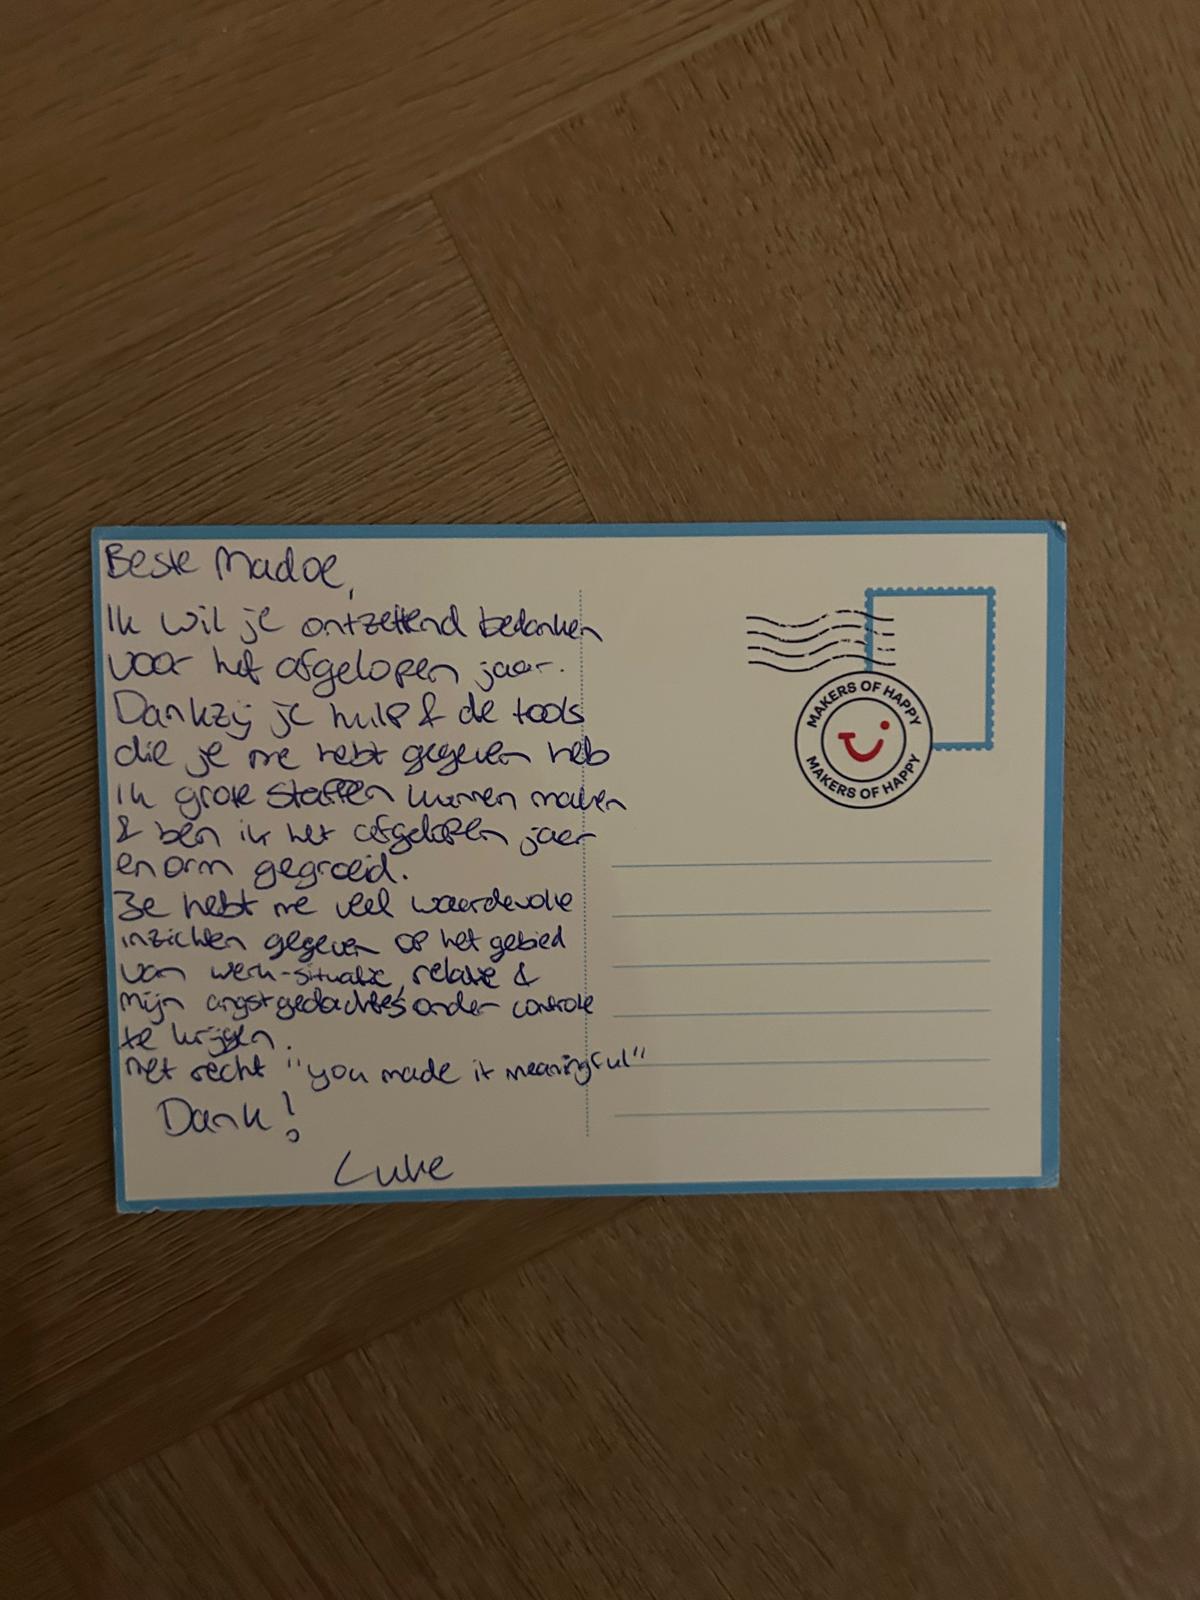 Beste Madoe,
Ik wil je ontzettend bedanken
voor het afgelopen jaar.
Dankzij je hulp & de tools
die je me hebt gegeven heb
ik grote stappen kunnen maken
& ben ik het afgelopen jaar
enorm gegroeid.
Je hebt me veel waardevolle
inzichten gegeven op het gebied
van werk-situatie, relatie &
mijn angstgedachtes onder controle
te krijgen.
Met recht "you made it meaningful"
Dank!
Luke
MAKERS OF HAPPY
MAKERS OF HAPPY